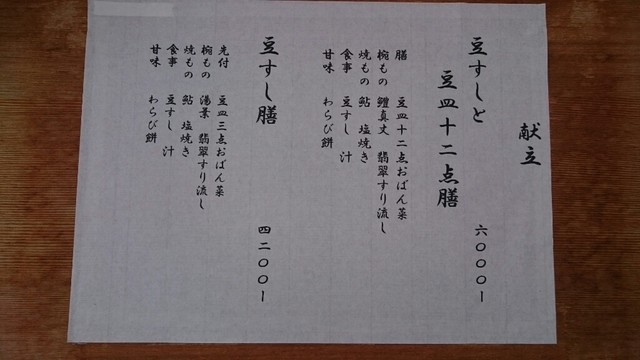 献立
豆すしと
豆皿十二点膳 六〇〇〇ー
膳 豆皿十二点おばん菜
椀もの 鱧真丈 翡翠すり流し
焼もの 鮎 塩焼き
食事 豆すし 汁
甘味 わらび餅
豆すし膳 四二〇〇ー
先付 豆皿三点おばん菜
椀もの 湯葉 翡翠すり流し
焼もの 鮎 塩焼き
食事 豆すし 汁
甘味 わらび餅